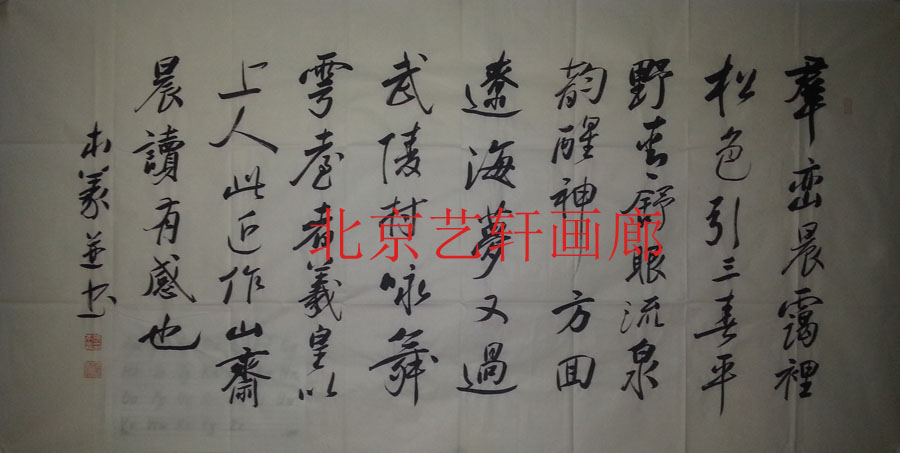 羣峦晨靄裡
松色引三春平
野杏舒眼流泉
韵醒神方回
遼海夢又過
武陵村咏舞
雩耋者羲皇以
上人此近作山齋
晨讀有感也
木義並书
北京艺轩画廊